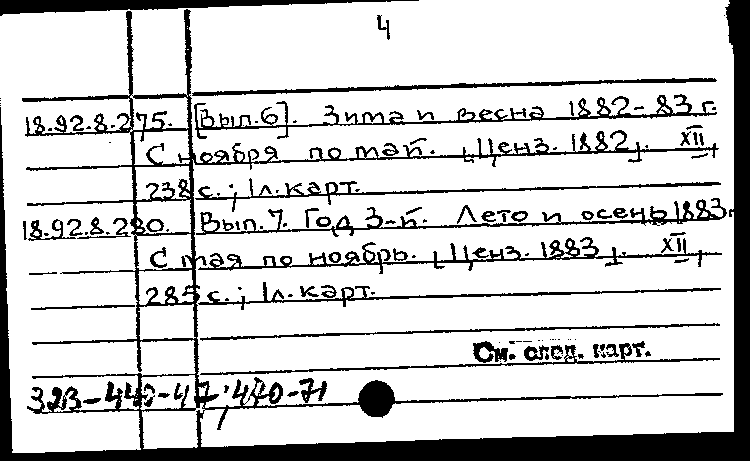 4
18.92.8.275. [Вып.6]. Зима и весна 1882-83 г.
С ноября по май. [Ценз. 1882]. XII,
238 с.; 1 л. карт.
18.92.8.280. Вып.7. Год 3-й. Лето и осень 1883г.
С мая по ноябрь. [Ценз. 1883]. XII,
285 с.; 1 л. карт.
См. след. карт.
323-440-47; 470-71